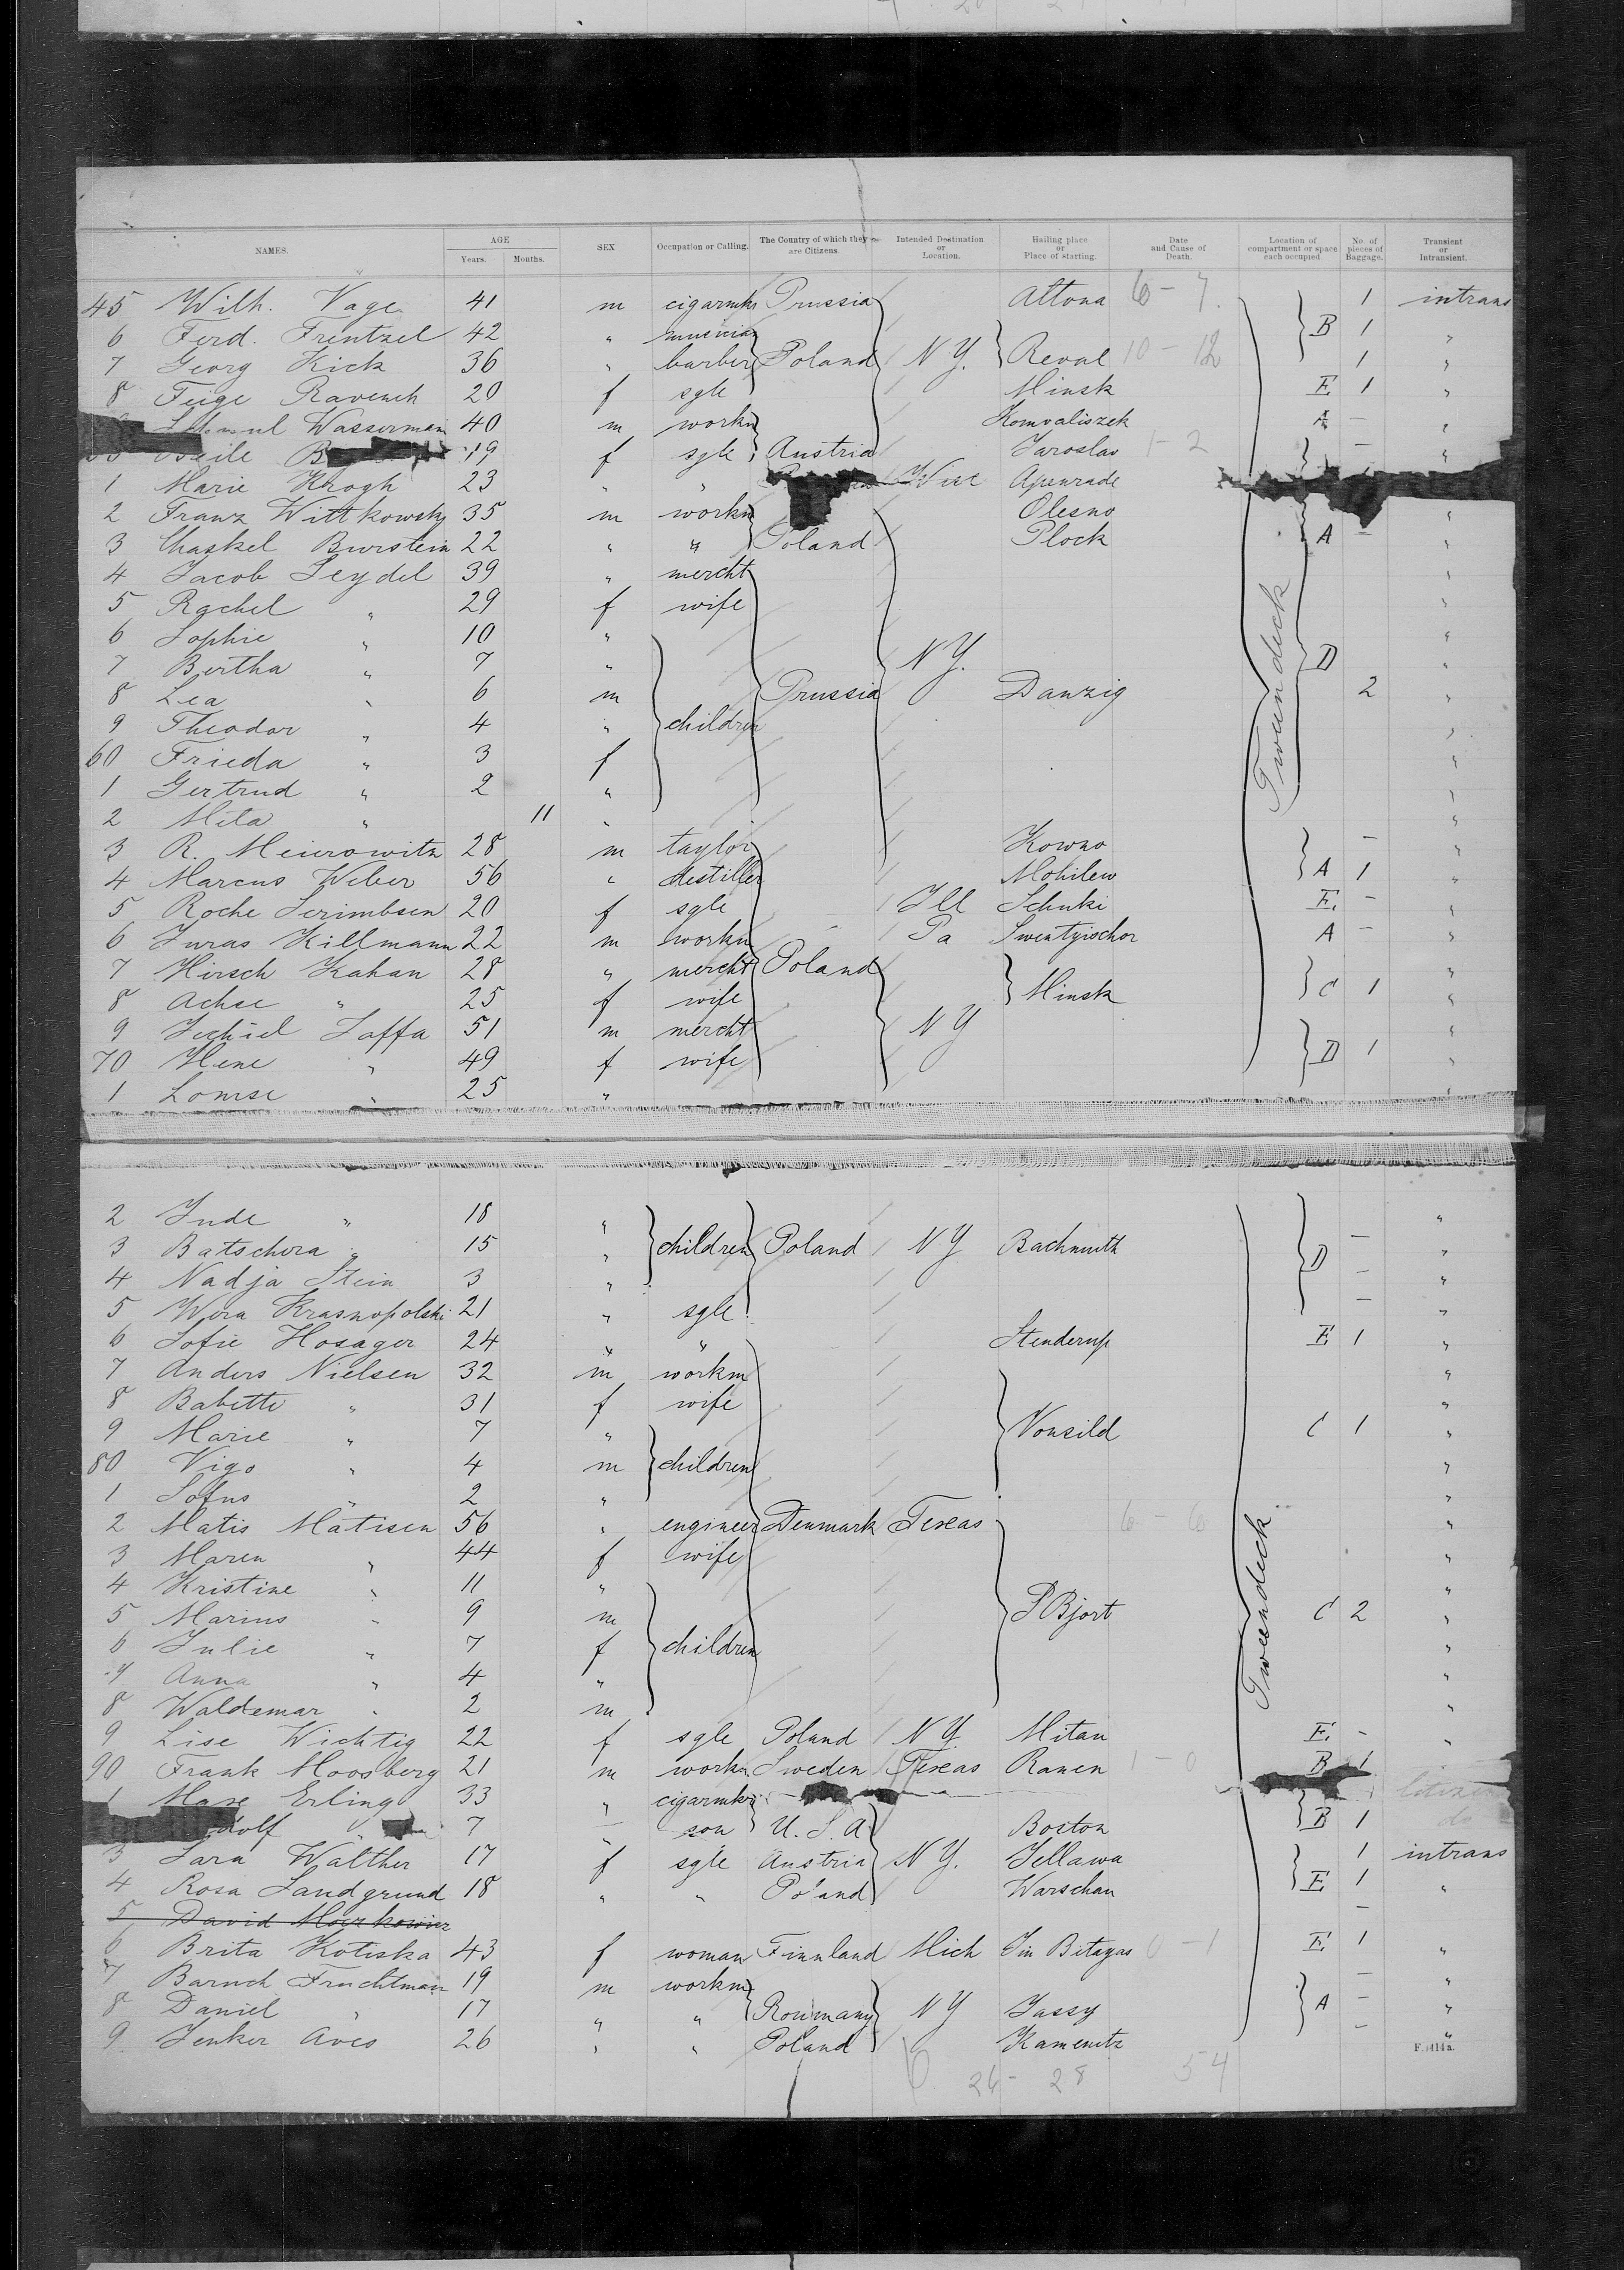 NAMES. AGE Years. Months. SEX Occupation or Calling. The Country of which they are Citizens. Intended Destination or Location. Hailing place or Place of starting. Date and Cause of Death. Location of compartment or space each occupied No. of pieces of Baggage. Transient or Intransient.
45 Wilh. Vage 41 m cigarmkr Prussia Altona 6 - 7. 1 intrans
6 Ferd. Frentzel 42 " musician B 1 "
7 Georg Kick 36 " barber Poland N Y. Reval 10 - 12 1 "
8 Feige Ravench 20 f sgle Minsk E 1 "
Wasserman 40 m workm Komvaliszek A - "
Beile 19 f sgle Austria Jaroslav 1 - 2 - "
1 Marie Krogh 23 " " Apenrade
2 Franz Wittkowsky 35 m workm Olesno "
3 Chaskel Burstein 22 " " Poland Plock A - "
4 Jacob Seydel 39 " mercht "
5 Rachel " 29 f wife "
6 Sophie " 10 " "
7 Bertha " 7 " N Y. D "
8 Lea " 6 m Prussia Danzig 2 "
9 Theodor " 4 " children "
60 Frieda " 3 f "
1 Gertrud " 2 " "
2 Meta " 11 " "
3 R. Meierowitz 28 m taylor Kowno - "
4 Marcus Weber 56 " destiller Mohilew A 1 "
5 Roche Serimbsen 20 f sgle Ill Schuki E. - "
6 Juras Killmann 22 m workm Pa Swentyischor A - "
7 Hirsch Kahan 28 " mercht Poland "
8 Achse " 25 f wife Minsk C 1 "
9 Jechiel Jaffa 51 m mercht N Y "
70 Hene " 49 f wife D 1 "
1 Lomse " 25 " "
2 Jude " 18 " "
3 Batschera " 15 " children Poland N Y Bachmuth - "
4 Nadja Stein 3 " D - "
5 Wera Krasnopolski 21 " sgle - "
6 Sofie Hosager 24 " " Stenderup E 1 "
7 Anders Nielsen 32 m workm "
8 Babette " 31 f wife "
9 Marie " 7 " Vonsild C 1 "
80 Vigo " 4 m children "
1 Sofus " 2 " "
2 Matis Matisen 56 " engineer Denmark Texas 6 - 6 "
3 Maren " 44 f wife "
4 Kristine " 11 " "
5 Marius " 9 m S Bjert C 2 "
6 Julie " 7 f children "
7 Anna " 4 " "
8 Waldemar " 2 m "
9 Lise Wichtig 22 f sgle Poland N Y. Mitau E. - "
90 Frank Moosberg 21 m workm Sweden Texas Ranen 1 - 0 B 1
1 Max Erling 33 " cigarmkr
dolf " 7 son U. S. A Boston B 1 do
3 Sara Walther 17 f sgle Austria N Y. Jellawa 1 intrans
4 Rosa Landgrund 18 " " Poland Warschau E 1 "
5 David Moszkowicz -
6 Brita Kotiska 43 f woman Finnland Mich 0 - 1 E 1 "
7 Baruch Fruchtman 19 m workm - "
8 Daniel " 17 " " Roumany N Y Jassy A - "
9 Jenker Aves 26 " " Poland Kamenitz - "
Tweendeck
Tweendeck
26 - 28 54
F. 414a.